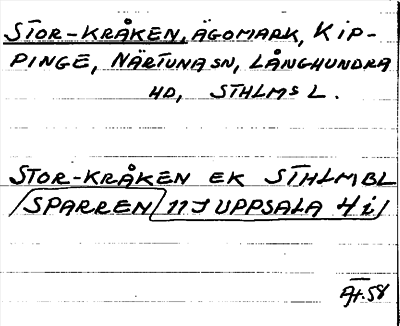 STOR-KRÅKEN, ÄGOMARK, KIP-
PINGE, NÄRTUNA SN, LÅNGHUNDRA
HD, STHLMS L.
STOR-KRÅKEN EK STHLMBL
SPARREN 11 J UPPSALA 4 i
58